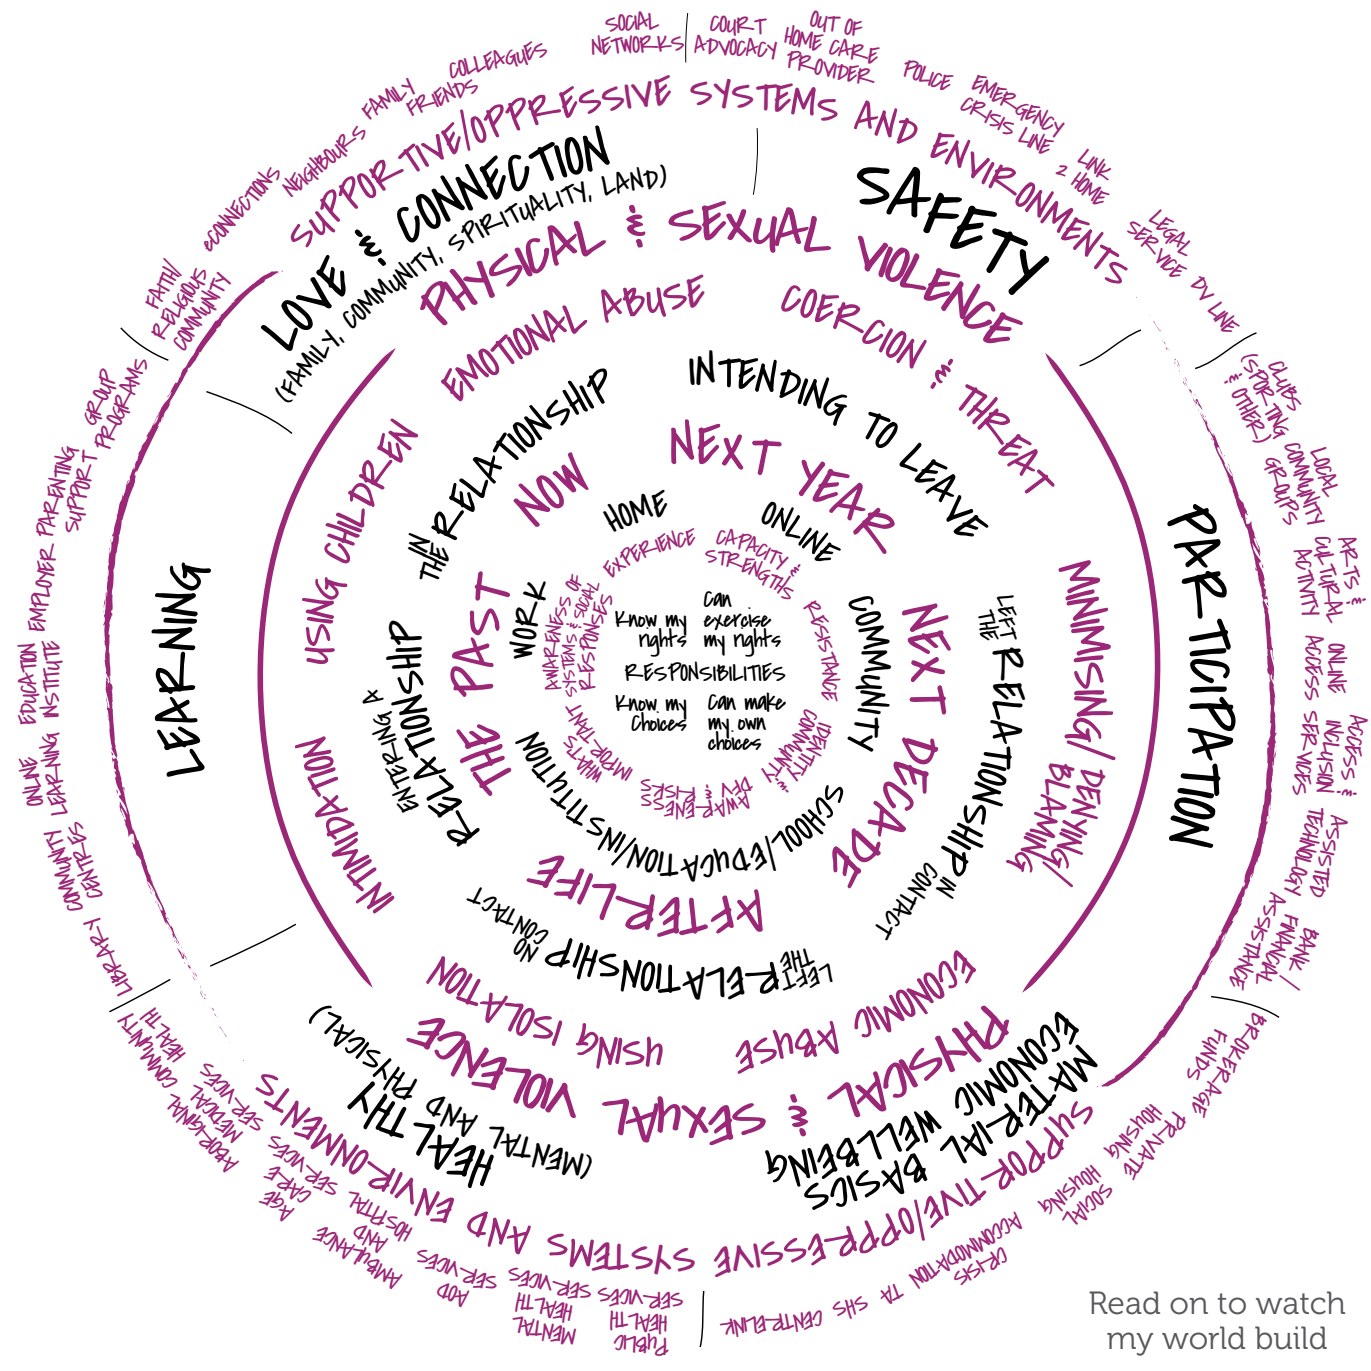 SOCIAL
NETWORKS
COLLEAGUES
FAMILY
FRIENDS
NEIGHBOURS
eCONNECTIONS
FAITH/
RELIGIOUS
COMMUNITY
COURT
ADVOCACY
OUT OF
HOME CARE
PROVIDER
POLICE
EMERGENCY
CRISIS LINE
LINK
2 HOME
LEGAL
SERVICE
DV LINE
CLUBS
(SPORTING
& OTHER)
LOCAL
COMMUNITY
GROUPS
ARTS &
CULTURAL
ACTIVITY
ONLINE
ACCESS
ACCESS &
INCLUSION
SERVICES
ASSISTED
TECHNOLOGY
BANK /
FINANCIAL
ASSISTANCE
BROKERAGE
FUNDS
PRIVATE
HOUSING
SOCIAL
HOUSING
CRISIS
ACCOMMODATION
TA
SHS
CENTRELINK
PUBLIC
HEALTH
SERVICES
MENTAL
HEALTH
SERVICES
AOD
SERVICES
AMBULANCE
AND
HOSPITAL
AGE
CARE
SERVICES
ABORIGINAL
MEDICAL
SERVICES
COMMUNITY
HEALTH
LIBRARY
COMMUNITY
CENTRES
ONLINE
LEARNING
EDUCATION
INSTITUTE
EMPLOYER
PARENTING
SUPPORT
GROUP
PROGRAMS
SUPPORTIVE/OPPRESSIVE SYSTEMS AND ENVIRONMENTS
SUPPORTIVE/OPPRESSIVE SYSTEMS AND ENVIRONMENTS
LOVE & CONNECTION
(FAMILY, COMMUNITY, SPIRITUALITY, LAND)
SAFETY
PARTICIPATION
MATERIAL BASICS
ECONOMIC WELLBEING
HEALTHY
(MENTAL AND PHYSICAL)
LEARNING
PHYSICAL & SEXUAL VIOLENCE
PHYSICAL & SEXUAL VIOLENCE
EMOTIONAL ABUSE
COERCION & THREAT
MINIMISING/ DENYING/
BLAMING
ECONOMIC ABUSE
USING ISOLATION
INTIMIDATION
USING CHILDREN
IN
THE
RELATIONSHIP
INTENDING TO LEAVE
LEFT
THE
RELATIONSHIP
IN
CONTACT
LEFT
THE
RELATIONSHIP
NO
CONTACT
ENTERING A
RELATIONSHIP
NOW
NEXT YEAR
NEXT DECADE
AFTERLIFE
THE PAST
HOME
ONLINE
COMMUNITY
SCHOOL/EDUCATION/INSTITUTION
WORK
EXPERIENCE
CAPACITY &
STRENGTHS
RESISTANCE
IDENTITY &
COMMUNITY
AWARENESS
DEV & RISKS
WHATS
IMPORTANT
AWARENESS OF
SYSTEMS & SOCIAL
RESPONSES
Know my
rights
Can
exercise
my rights
RESPONSIBILITIES
Know my
Choices
Can make
my own
choices
Read on to watch
my world build